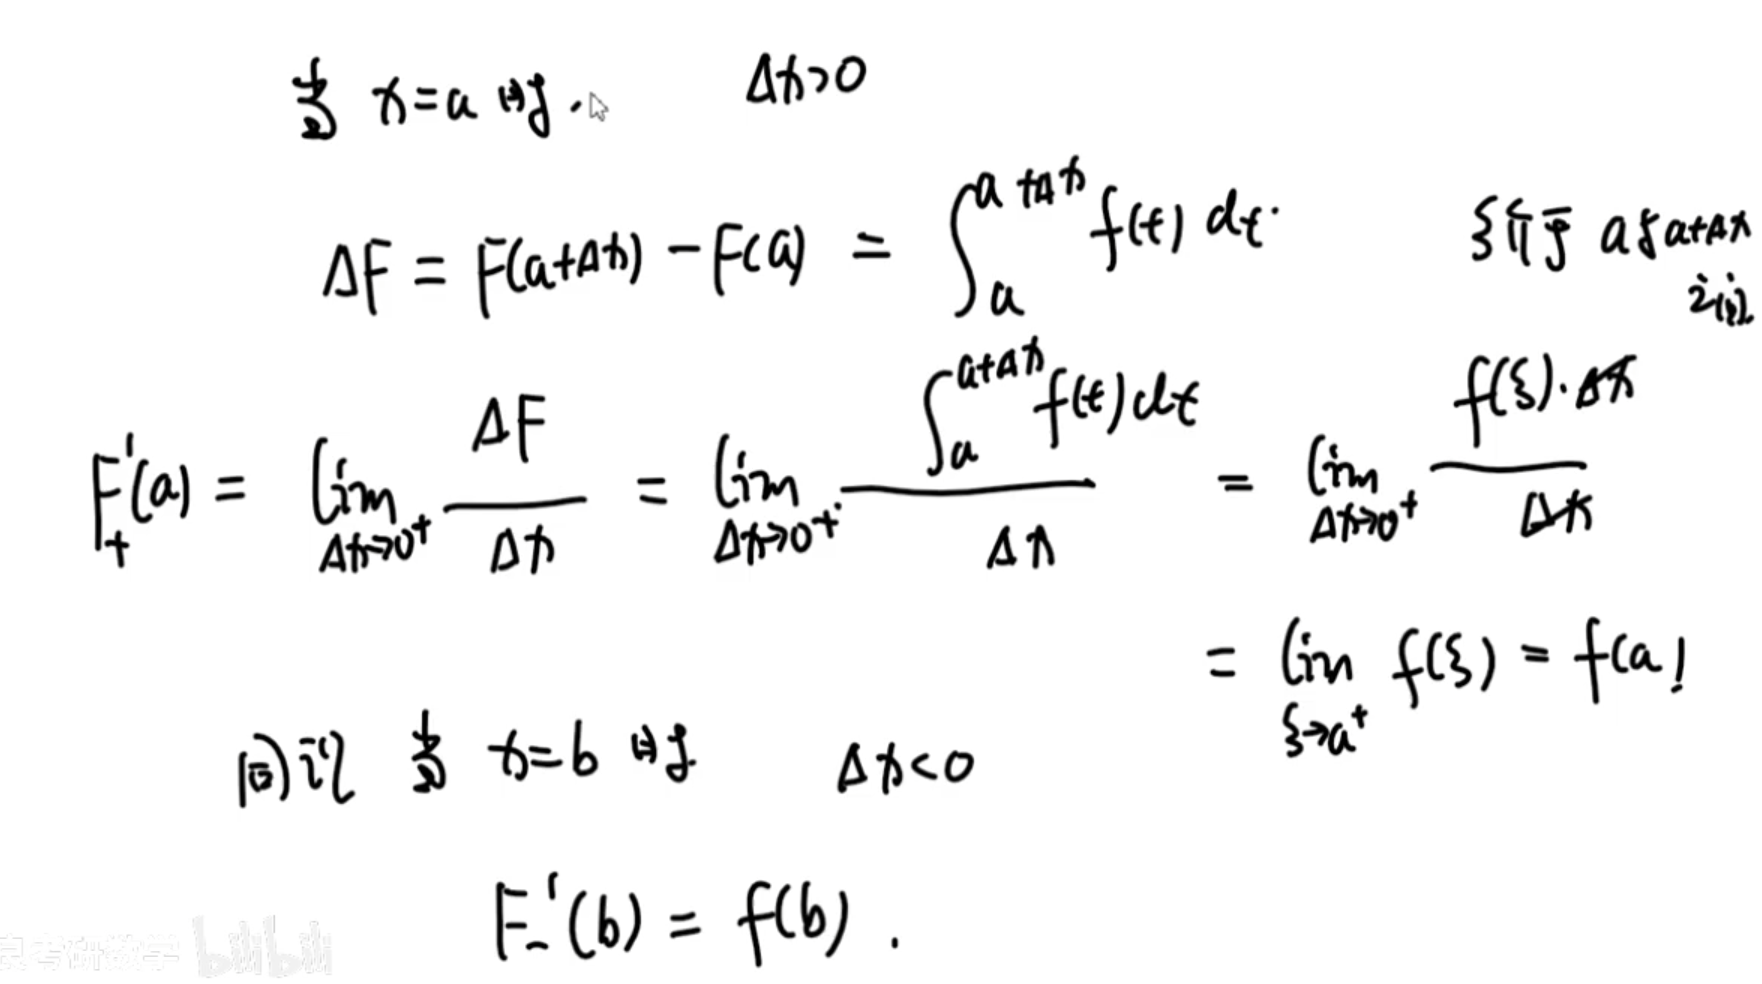 当 x=a 时. Δx>0
ΔF = F(a+Δx) - F(a) = ∫_a^{a+Δx} f(t) dt. ξ介于 a与a+Δx
之间.
F'_+(a) = lim_{Δx→0^+} ΔF/Δx = lim_{Δx→0^+} ∫_a^{a+Δx} f(t)dt / Δx = lim_{Δx→0^+} f(ξ)·Δx / Δx
= lim_{ξ→a^+} f(ξ) = f(a)
同理 当 x=b 时. Δx<0
F'_-(b) = f(b).
考研数学 bilibili